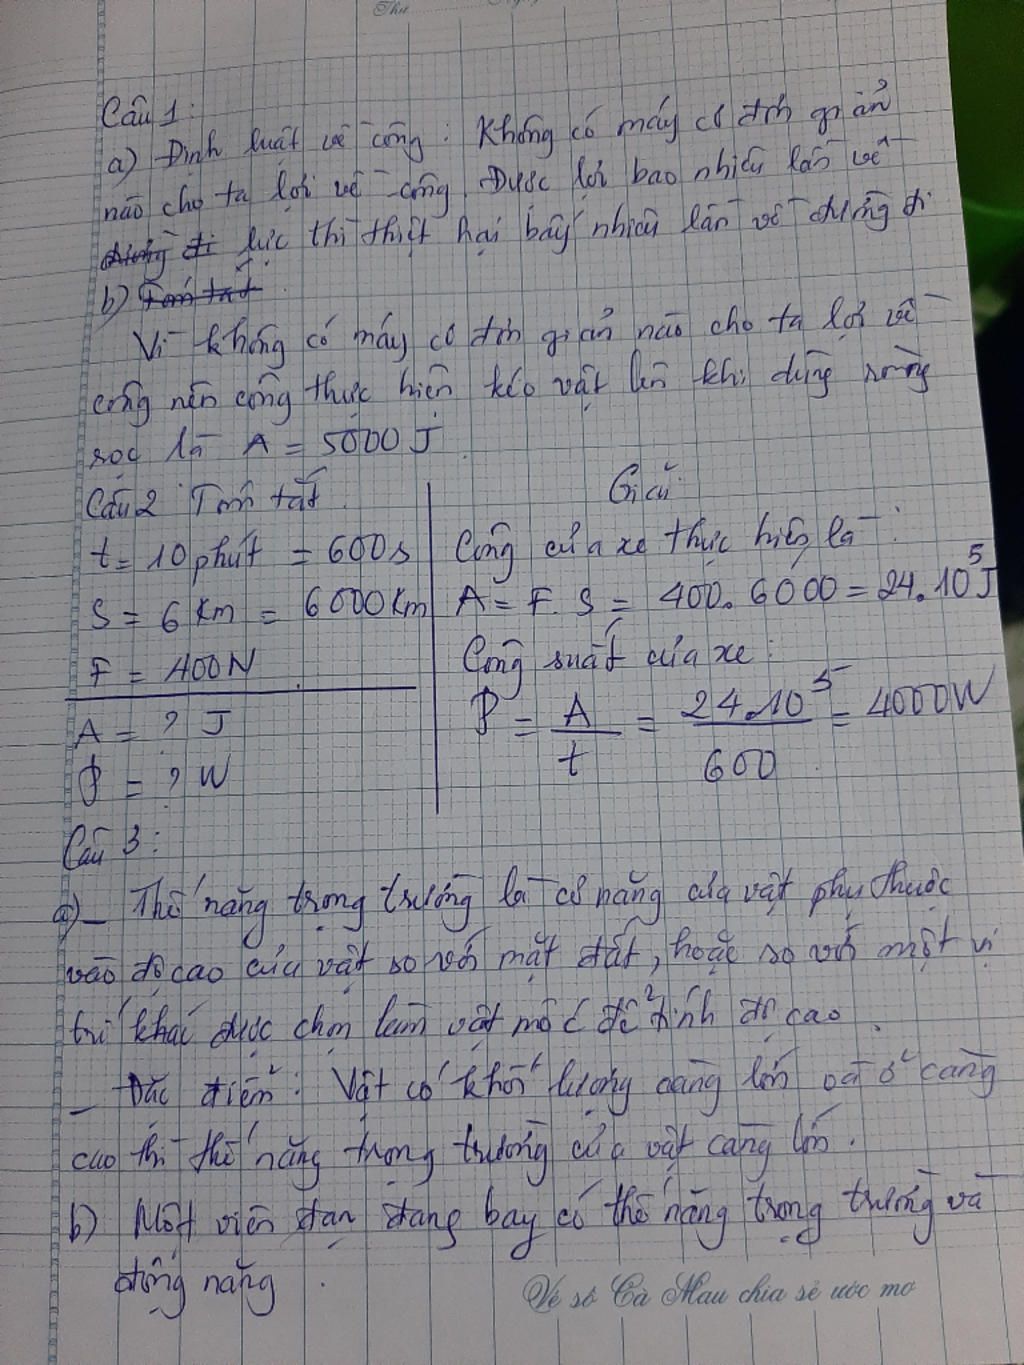 Thứ
Câu 1:
a) Định luật về công: Không có máy cơ đơn giản
nào cho ta lợi về công. Được lợi bao nhiêu lần về
đường đi lực thì thiệt hại bấy nhiêu lần về đường đi
b) Tóm tắt.
Vì không có máy cơ đơn giản nào cho ta lợi về
công nên công thực hiện kéo vật lên khi dùng ròng
rọc là A = 5000 J.
Câu 2 Tóm tắt.
t = 10 phút = 600s
S = 6 Km = 6000Km
F = 400N
A = ? J
P = ? W
Giải
Công của xe thực hiện là:
A = F. S = 400. 6000 = 24.10⁵J
Công suất của xe:
P = A/t = 24.10⁵/600 = 4000W
Câu 3:
a) - Thế năng trọng trường là cơ năng của vật phụ thuộc
vào độ cao của vật so với mặt đất, hoặc so với một vị
trí khác được chọn làm vật mốc để tính độ cao.
- Đặc điểm: Vật có khối lượng càng lớn và ở càng
cao thì thế năng trọng trường của vật càng lớn.
b) Một viên đạn đang bay có thế năng trọng trường và
động năng.
Vé số Cà Mau chia sẻ ước mơ